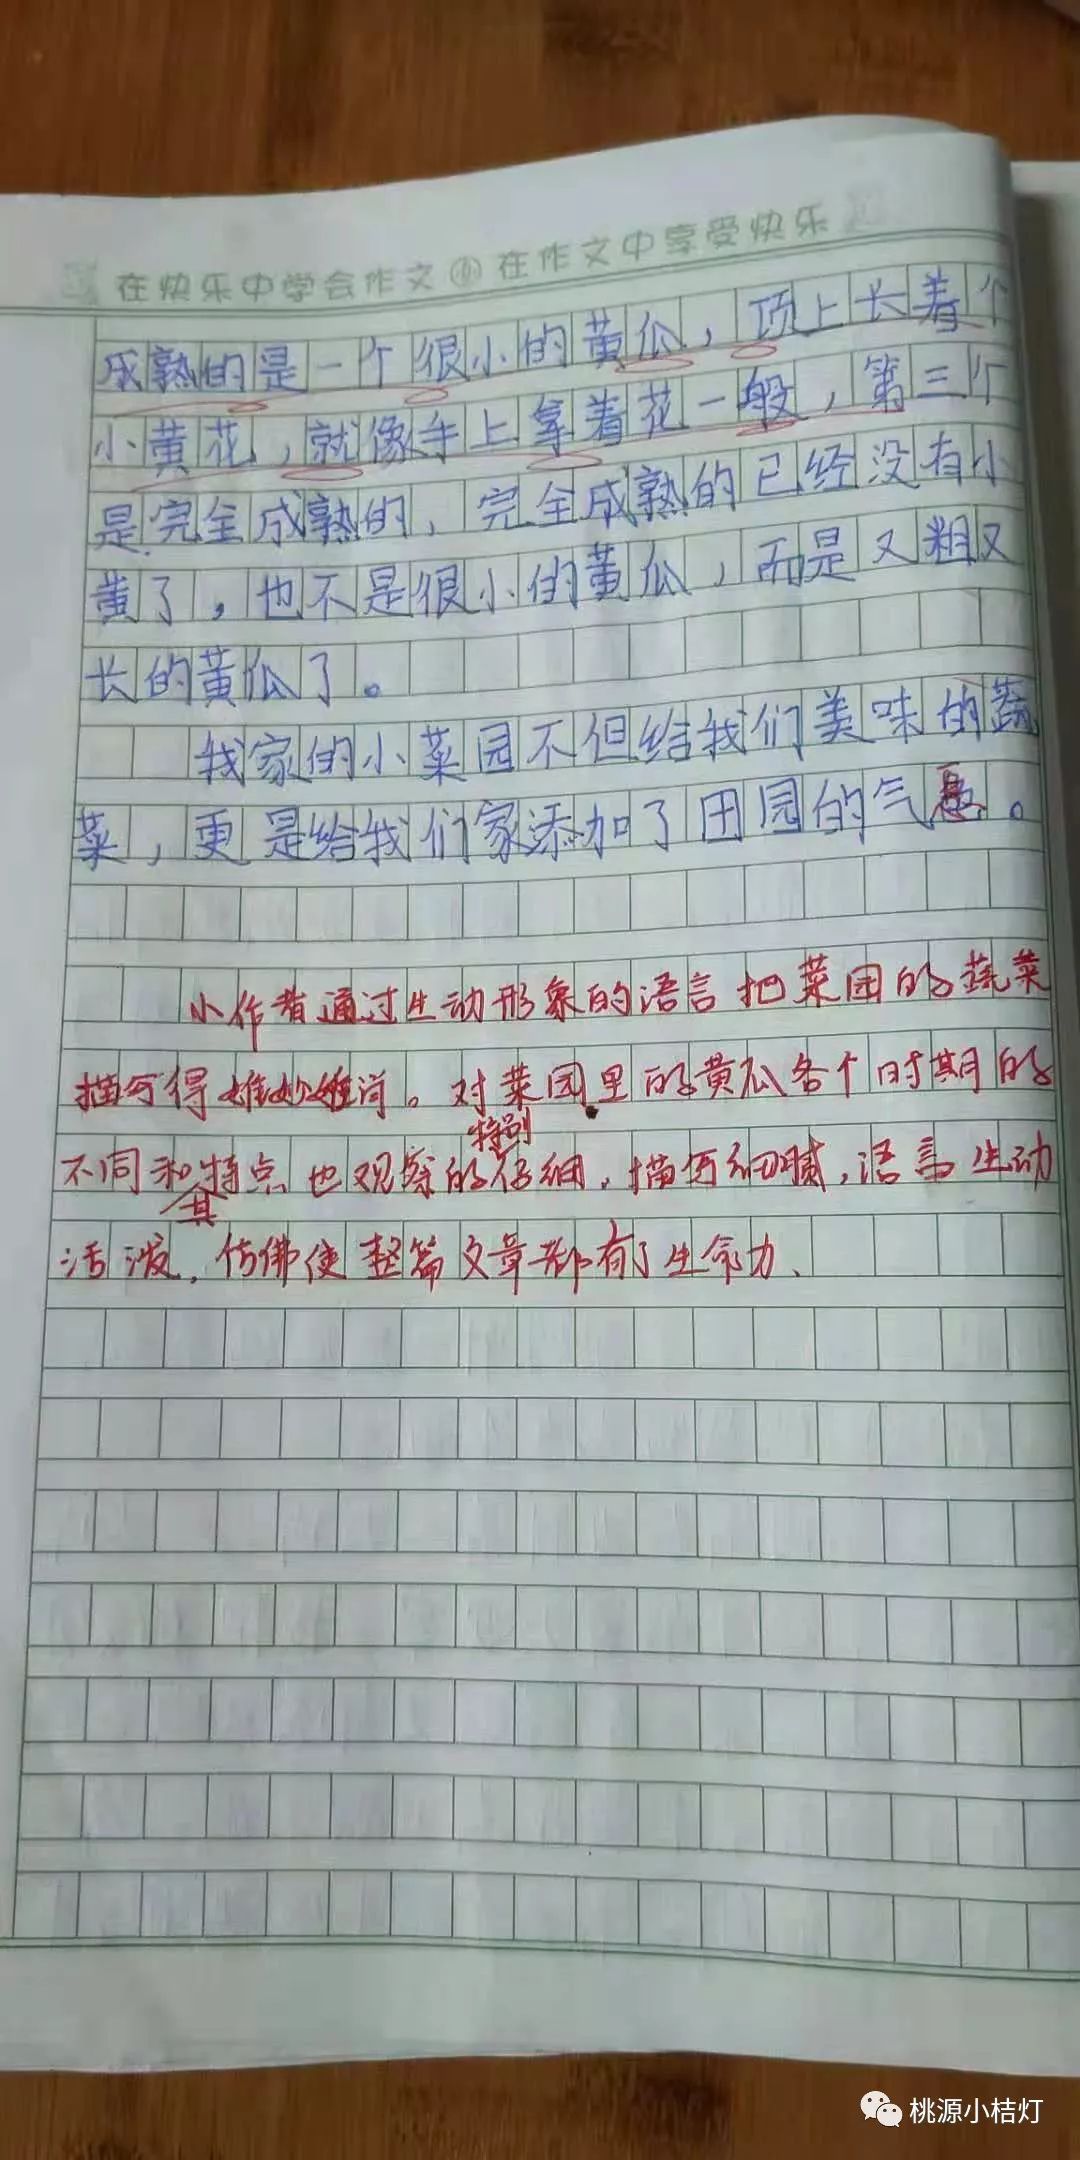 在快乐中学会作文 在作文中享受快乐
成熟的是一个很小的黄瓜，顶上长着个
小黄花，就像手上拿着花一般，第三个
是完全成熟的，完全成熟的已经没有小
黄了，也不是很小的黄瓜，而是又粗又
长的黄瓜了。
我家的小菜园不但给我们美味的蔬
菜，更是给我们家添加了田园的气息。
小作者通过生动形象的语言把菜园的蔬菜
描写得惟妙惟肖。对菜园里的黄瓜各个时期的
特别
不同和特点也观察的仔细，描写细腻，语言生动
其
活泼，仿佛使整篇文章都有了生命力、
桃源小桔灯